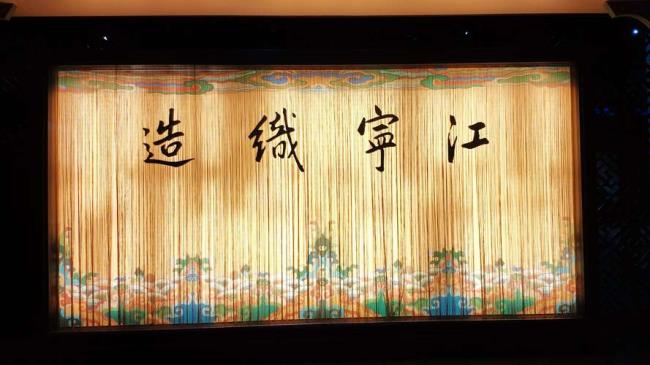 江寧織造